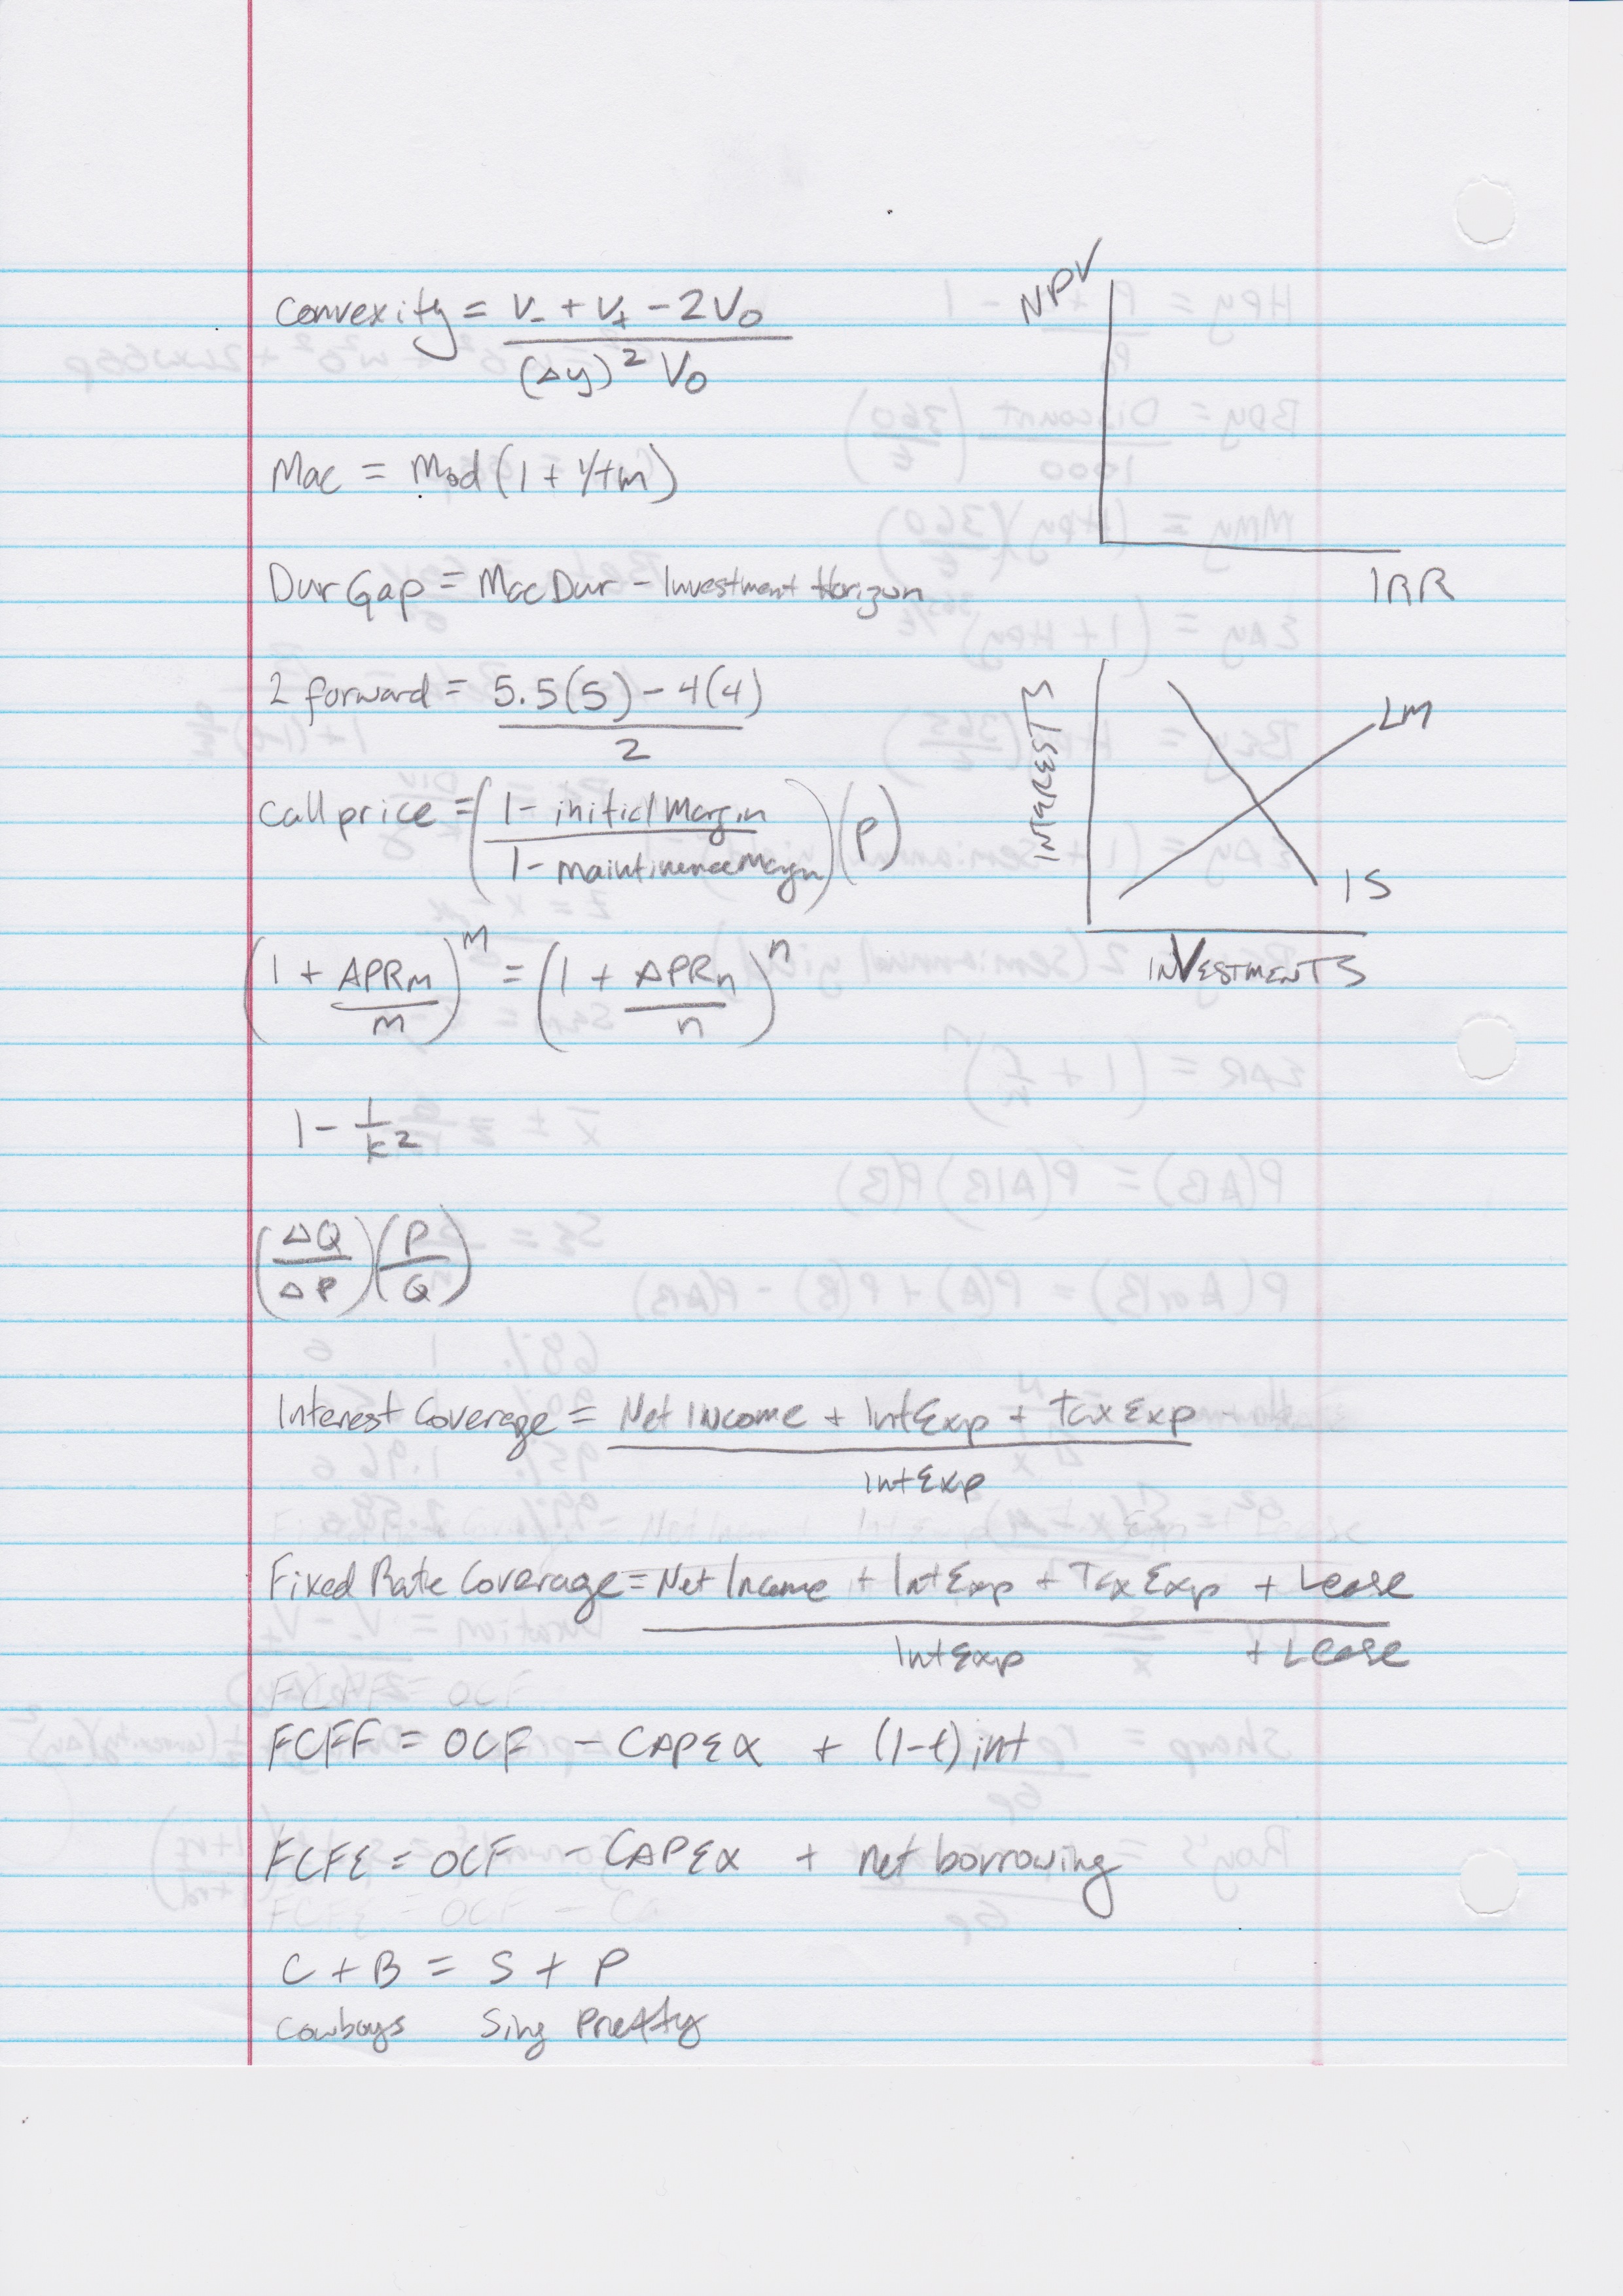 Convexity = V- + V+ - 2V0
(Δy)² V0
Mac = Mod (1 + Ytm)
Dur Gap = Mac Dur - Investment Horizon
2 forward = 5.5(5) - 4(4)
2
Call price = (1 - initial Margin
1 - maintinence Margn) (P)
(1 + APRm
m)^m = (1 + APRn
n)^n
1 - 1
k²
(ΔQ
ΔP) (P
Q)
Interest Coverage = Net Income + Int Exp + Tax Exp
Int Exp
Fixed Rate Coverage = Net Income + Int Exp + Tax Exp + Lease
Int Exp + Lease
FCFF = OCF
FCFF = OCF - CAPEX + (1-t) int
FCFE = OCF - CAPEX + net borrowing
FCFE = OCF - CA
C + B = S + P
Cowboys Sing Pretty
NPV
IRR
INTEREST
LM
IS
INVESTMENTS